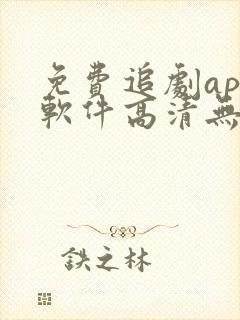 免費追劇ap
軟件高清無
鉄之林